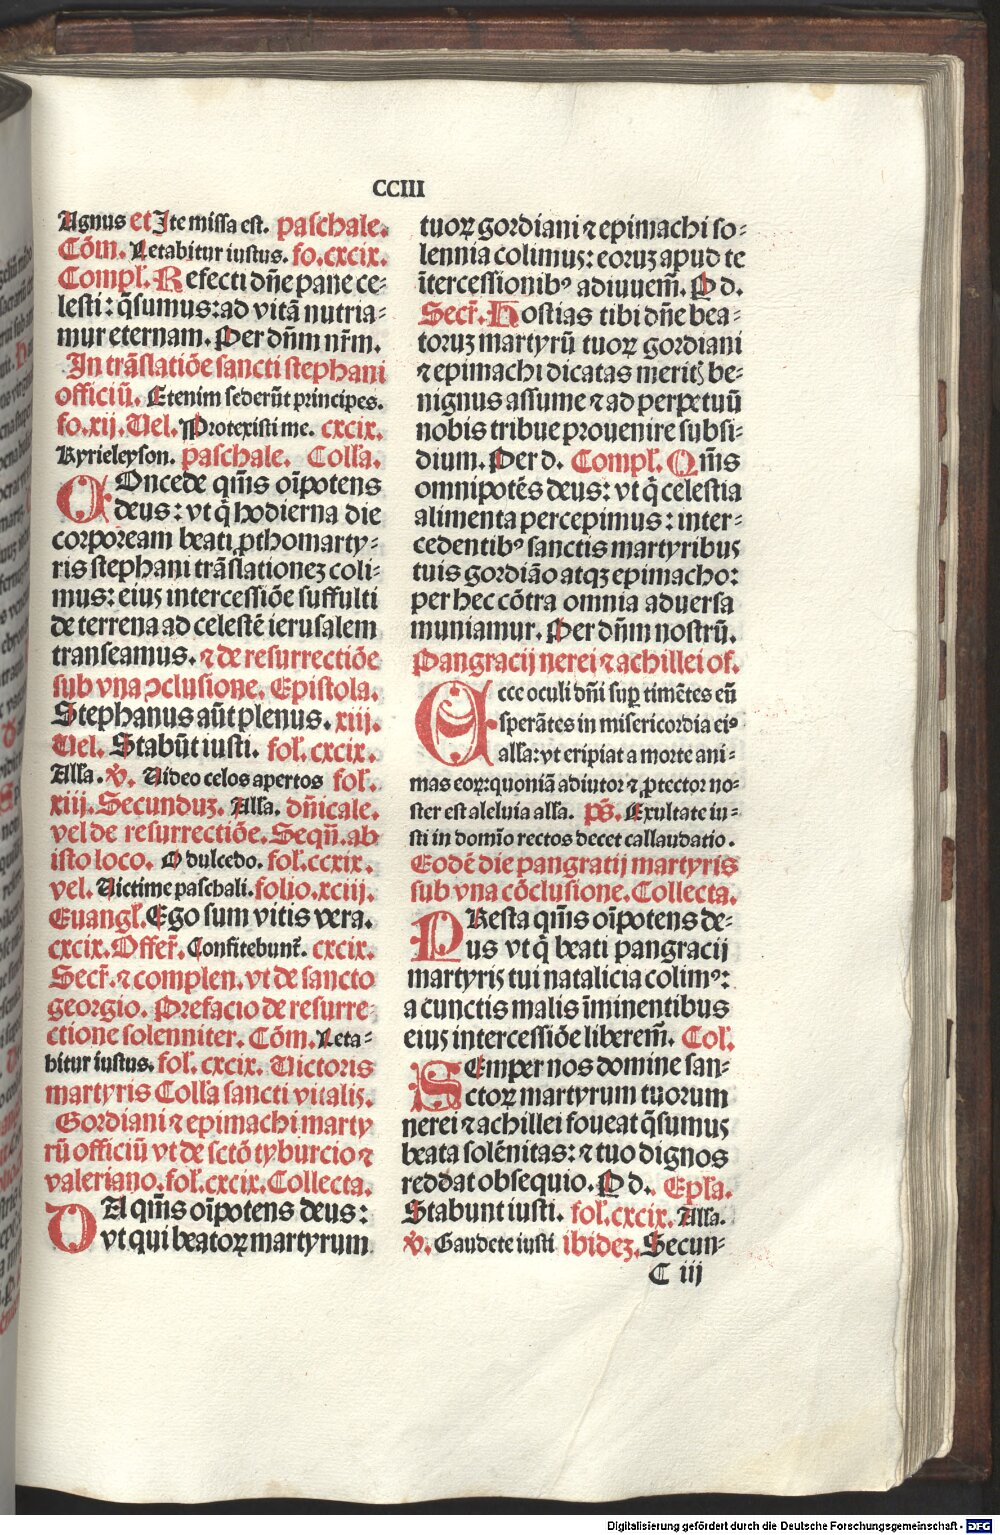 CCIII
Agnus et Ite missa est. paschale.
Cōm. Letabitur iustus. fo.cxcix.
Compl̄. Refecti dn̄e pane ce-
lesti: q̄sumus: ad vitā nutria-
mur eternam. Per dn̄m nr̄m.
In trāslatiōe sancti stephani
officiū. Etenim sederūt principes.
fo.xij. Vel. Protexisti me. cxcix.
Kyrieleyson. paschale. Coll̄a.
COncede qm̄s oīpotens
deus: vt q̄ hodierna die
corpoream beati ꝓthomarty-
ris stephani trāslationeꝫ coli-
mus: eius intercessiōe suffulti
de terrena ad celestē ierusalem
transeamus. ⁊ de resurrectiōe
sub vna ↄclusione. Epistola.
Stephanus aūt plenus. xiij.
Vel. Stabūt iusti. fol̄. cxcix.
All̄a. ℣. Video celos apertos fol̄.
xiij. Secunduꝫ. All̄a. dn̄icale.
vel de resurrectiōe. Seqn̄. ab
isto loco. O dulcedo. fol̄. ccxix.
vel. Victime paschali. folio.xciij.
Euangl̄. Ego sum vitis vera.
cxcix. Offer̄. Confitebunt̄. cxcix.
Secr̄. ⁊ complen. vt de sancto
georgio. Prefacio de resurre-
ctione solenniter. Cōm. Leta-
bitur iustus. fol̄. cxcix. Victoris
martyris Coll̄a sancti vitalis.
Gordiani ⁊ epimachi marty
rū officiū vt de sctō tyburcio ⁊
valeriano. fol̄. cxcix. Collecta.
DA qm̄s oīpotens deus:
vt qui beatoꝝ martyrum
tuoꝝ gordiani ⁊ epimachi so-
lennia colimus: eoruꝫ apud te
ītercessionibꝰ adiuuem̄. P d.
Secr̄. Hostias tibi dn̄e bea-
toruꝫ martyrū tuoꝝ gordiani
⁊ epimachi dicatas meritꝭ be-
nignus assume ⁊ ad perpetuū
nobis tribue prouenire subsi-
dium. Per d. Compl̄. Qm̄s
omnipotēs deus: vt q̄ celestia
alimenta percepimus: inter-
cedentibꝰ sanctis martyribus
tuis gordiāo atqꝫ epimacho:
per hec cōtra omnia aduersa
muniamur. Per dn̄m nostrū.
Pangracij nerei ⁊ achillei of.
Ecce oculi dn̄i suꝑ timētes eū
sperātes in misericordia eiꝰ
all̄a: vt eripiat a morte ani-
mas eoꝝ: quoniā adiutor ⁊ ꝓtector no-
ster est aleluia all̄a. ps̄. Exultate iu-
sti in domīo rectos decet collaudatio.
Eodē die pangratij martyris
sub vna cōclusione. Collecta.
PResta qm̄s oīpotens de-
us vt q̄ beati pangracij
martyris tui natalicia colimꝰ:
a cunctis malis īminentibus
eius intercessiōe liberem̄. Col̄.
SEmper nos domine san-
ctoꝝ martyrum tuorum
nerei ⁊ achillei foueat q̄sumus
beata solēnitas: ⁊ tuo dignos
reddat obsequio. P d. Epl̄a.
Stabunt iusti. fol̄. cxcix. All̄a.
℣. Gaudete iusti ibideꝫ. Secun-
C iij
Digitalisierung gefördert durch die Deutsche Forschungsgemeinschaft - DFG